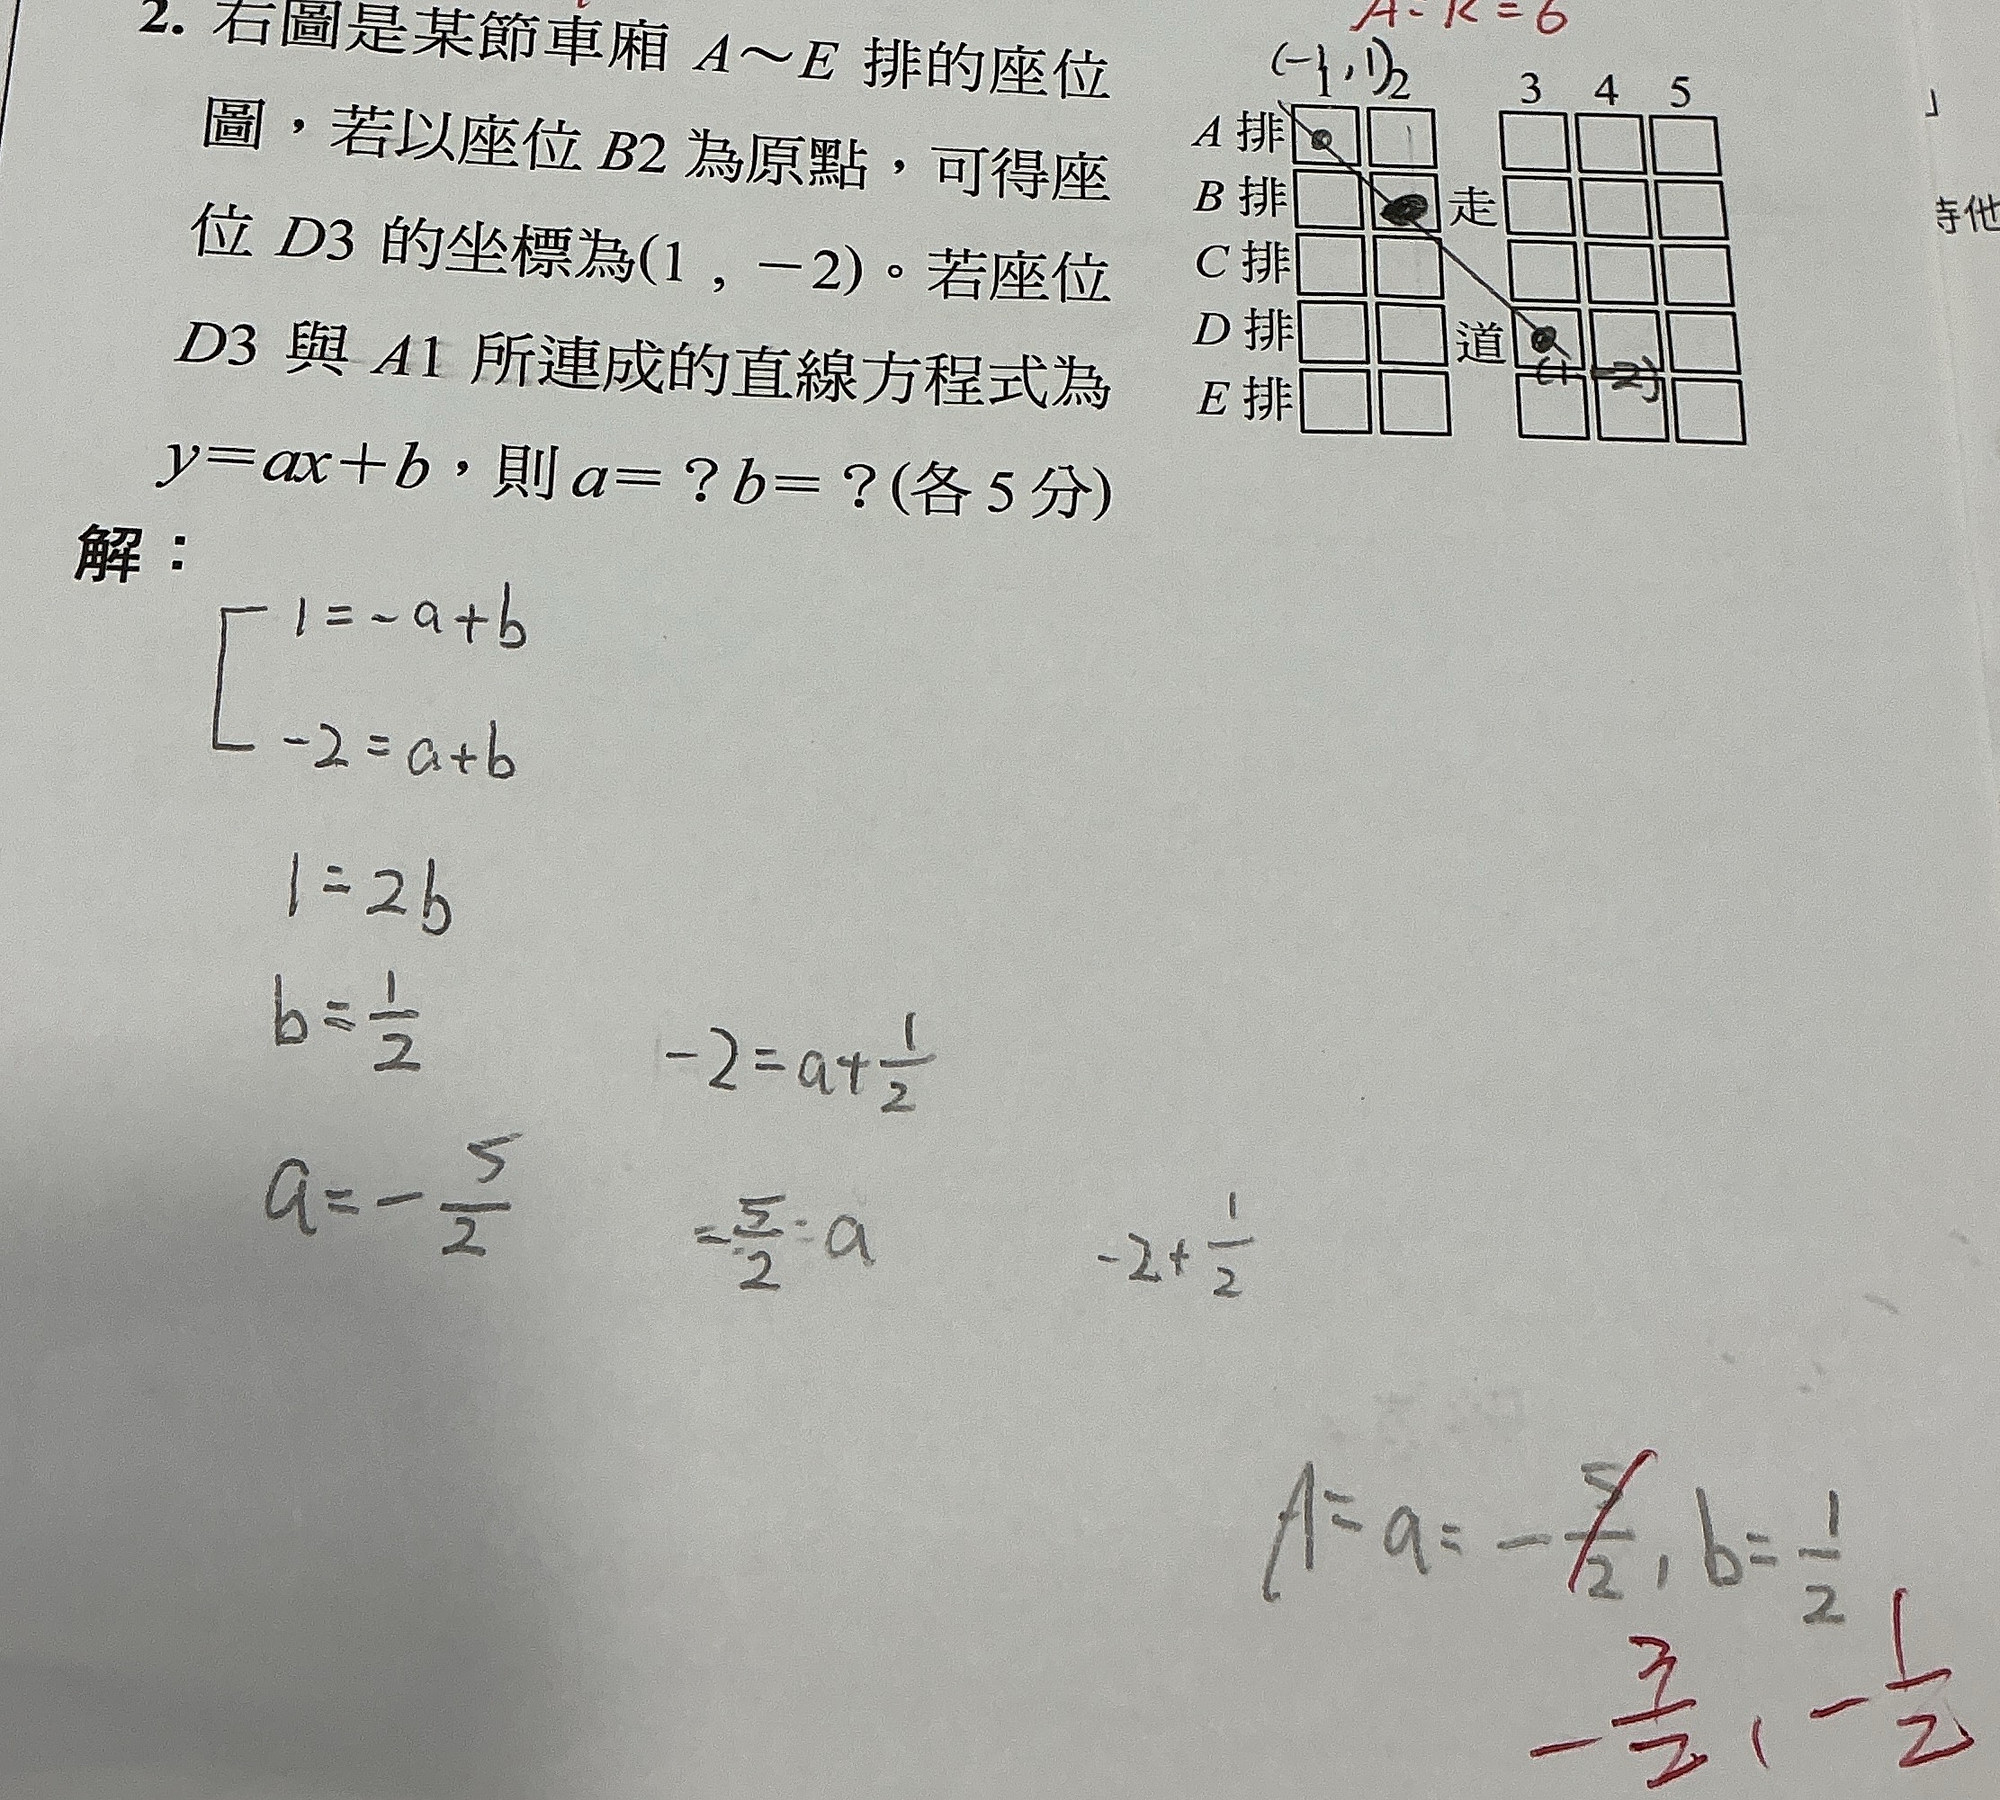 A: k = 6
2. 右圖是某節車廂 A～E 排的座位
圖，若以座位 B2 為原點，可得座
位 D3 的坐標為(1 , －2)。若座位
D3 與 A1 所連成的直線方程式為
y＝ax＋b，則 a＝？b＝？(各 5 分)
(-1,1)
1 2 3 4 5
A 排
B 排
C 排
D 排
E 排
走
道
(1 -2)
」
時他
解：
1=-a+b
-2=a+b
1=2b
b=1/2
-2=a+1/2
a=-5/2
-5/2=a
-2+1/2
A= a= -5/2, b= 1/2
-3/2, -1/2